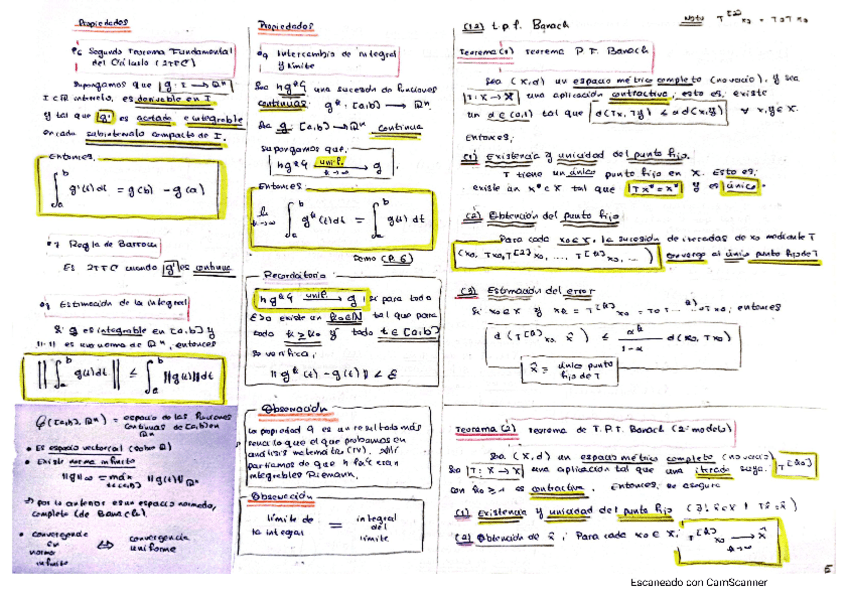 Propiedades
•6 Segundo Teorema Fundamental
del Cálculo (2TFC)
Supongamos que g: I → ℝⁿ
I ⊂ ℝ intervalo, es derivable en I
y tal que g' es acotada e integrable
en cada subintervalo compacto de I.
Entonces,
∫ₐᵇ g'(t)dt = g(b) - g(a)
•7 Regla de Barrow
Es 2TFC cuando g' es continua
•8 Estimación de la integral
Si g es integrable en [a,b] y
||·|| es una norma de ℝⁿ, entonces
||∫ₐᵇ g(t)dt|| ≤ ∫ₐᵇ ||g(t)||dt
C([a,b], ℝⁿ) = espacio de las funciones
continuas de [a,b] en
ℝⁿ
• Es espacio vectorial (sobre ℝ)
• Existe norma infinito
||g||∞ = máx t∈[a,b] ||g(t)||ℝⁿ
por lo anterior es un espacio normado,
completo (de Banach).
• convergencia en norma infinito ⇔ convergencia uniforme
Propiedades
•9 Intercambio de integral
y límite
Sea {gᵏ} una sucesión de funciones
continuas gᵏ: [a,b] → ℝⁿ.
Sea g: [a,b] → ℝⁿ continua
Supongamos que,
{gᵏ} unif. k→∞ → g
Entonces
lim k→∞ ∫ₐᵇ gᵏ(t)dt = ∫ₐᵇ g(t) dt
Recordatorio
{gᵏ} unif. → g si para todo
ε>0 existe un k₀∈ℕ tal que para
todo k≥k₀ y todo t∈[a,b]
se verifica,
||gᵏ(t) - g(t)|| < ε
Observación
La propiedad 9 es un resultado más
que el que probamos en
análisis matemático (IV). Allí
partíamos de que
integrables Riemann.
Observación
límite de la integral = integral del límite
(1.2) t.p.f. Banach
Nota T^[2]x₀ = T∘T x₀
Teorema (1) Teorema P.F. Banach
Sea (X,d) un espacio métrico completo (no vacío), y sea
T: X → X una aplicación contractiva, esto es, existe
un α∈(0,1) tal que d(Tx,Ty) ≤ α d(x,y) ∀ x,y∈X.
Entonces,
(1) Existencia y unicidad del punto fijo.
T tiene un único punto fijo en X. Esto es,
existe un x*∈X tal que Tx*=x* y es único.
(2) Obtención del punto fijo
Para cada x₀∈X, la sucesión de iteradas de x₀ mediante T
(x₀, Tx₀, T^[2]x₀, ..., T^[k]x₀, ...) converge al único punto fijo de T
(3) Estimación del error
Si x₀∈X y x_k = T^[k]x₀ = T∘T∘...∘Tx₀, entonces
d(T^[k]x₀, x̂) ≤ αᵏ/(1-α) d(x₀, Tx₀)
x̂ = único punto
fijo de T
Teorema (2) Teorema de T.P.F. Banach (2º modelo)
Sea (X,d) un espacio métrico completo (no vacío)
Sea T: X → X una aplicación tal que una iterada suya, T^[k₀]
con k₀ ≥ 1 es contractiva. Entonces, se asegura
(1) Existencia y unicidad del punto fijo (∃! x̂∈X | Tx̂=x̂)
(2) Obtención de x̂, Para cada x₀∈X, T^[k]x₀ k→∞ → x̂
5
Escaneado con CamScanner